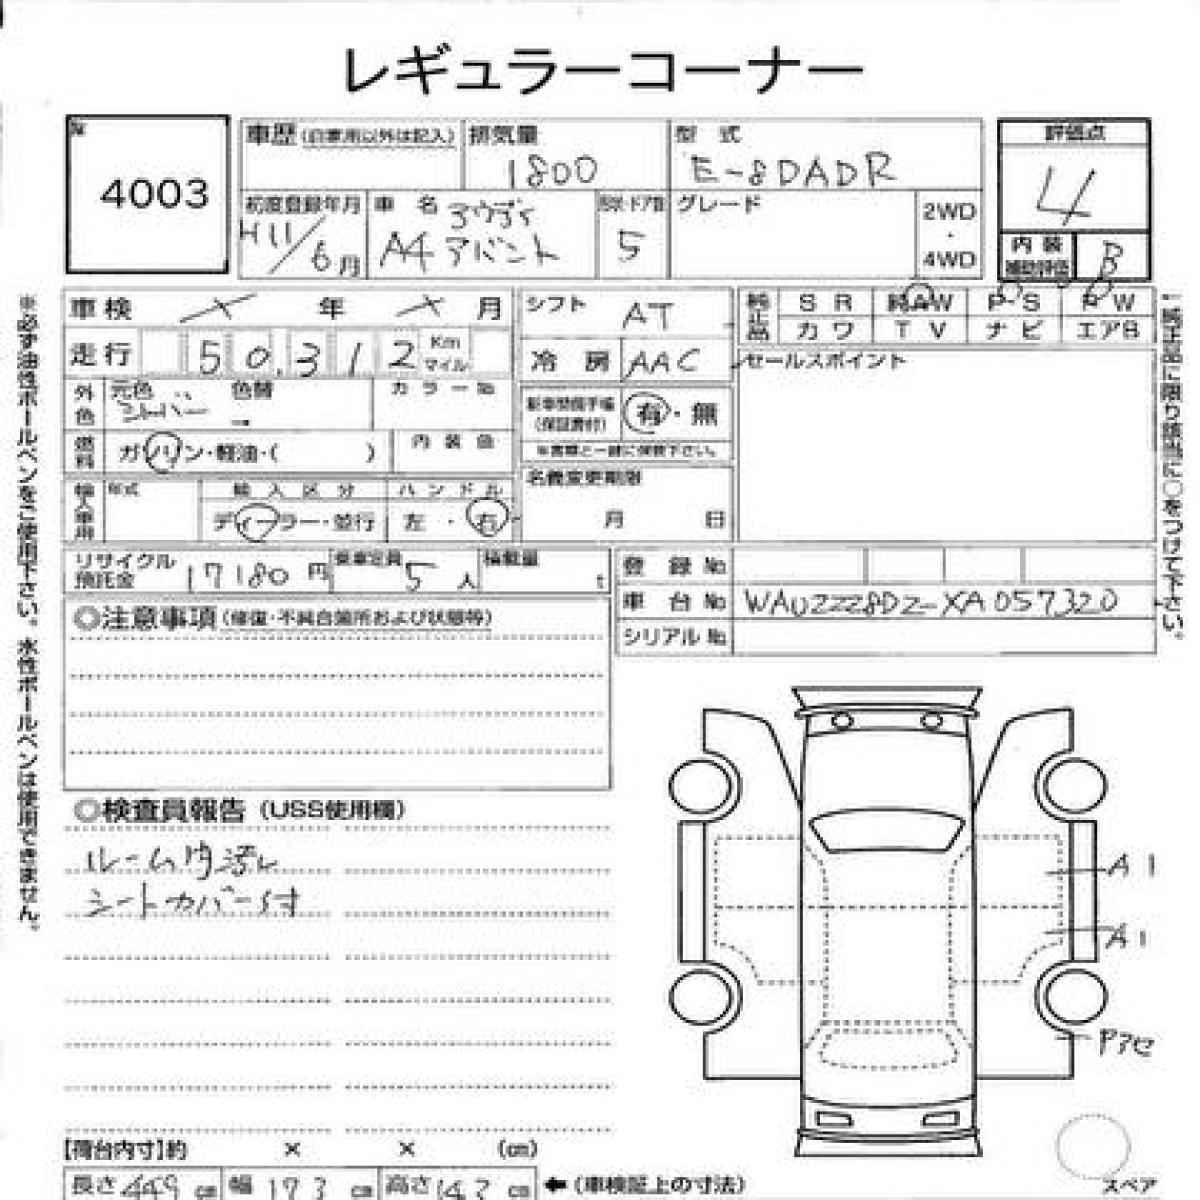 レギュラーコーナー
№
4003
車歴 (自家用以外は記入) 排気量 型 式 評価点
1800 E-8DADR 4
初度登録年月 車 名 アウディ グレード 2WD
H11/6月 A4 アバント 5 ・ 4WD
内装補助評価 B
車検 × 年 × 月 シフト AT 純正品 SR 純AW PS PW
カワ TV ナビ エアB
走行 50,312 Km マイル 冷房 AAC セールスポイント
外色 元色 シルバー 色替 → カラー№
新車時取手帳 (保証書付) 有・無
※書類と一緒に保管下さい。
燃料 ガソリン・軽油・( ) 内装色
名義変更期限
月 日
輸入車用 年式 輸入区分 ハンドル
ディーラー・並行 左・右
リサイクル預託金 17180円 乗車定員 5人 積載量 t
登録 №
車台 № WAUZZZ8DZ-XA057320
シリアル №
◎注意事項 (修復・不具合箇所および状態等)
◎検査員報告 (USS使用欄)
ルーム内汚レ
シートカバー付
A1
A1
Pアセ
【荷台内寸】約 × × (㎝)
長さ 449 ㎝ 幅 173 ㎝ 高さ 142 ㎝ ←(車検証上の寸法)
スペア
※必ず油性ボールペンをご使用下さい。水性ボールペンは使用できません。
純正品に限り該当に○をつけて下さい。